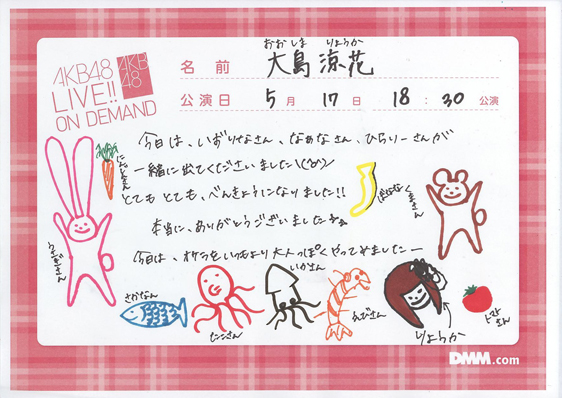 AKB48
LIVE!!
ON DEMAND
AKB
48
おおしま りょうか
名前 大島 涼花
公演日 5月 17日 18:30公演
今日は、いずりなさん、なぁなさん、ひらりーさんが
一緒に出てくださいました\(^o^)/
とても とても、べんきょうになりました!!
本当に、ありがとうございました
今日は、オケラをいつもより大人っぽくやってみました ー
にんじんさん
うさぎさん
ばなな
くまさん
さかなさん
たこさん
いかさん
えびさん
りょうか
トマトさん
DMM.com